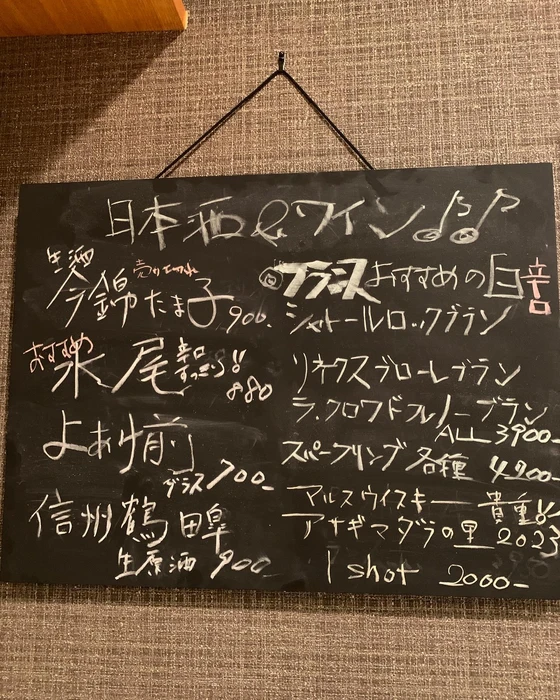 日本酒&ワイン♪♪
生酒
売り切れ
今錦 たま子
900.
おすすめ
水尾 辛口 すっきり!!
880
よあけ前
グラス 700-
信州鶴田皐
生原酒 900
フランスおすすめの白辛口
シャトールロックブラン
リネクスブローレブラン
ラ.クロワドフルノーブラン
ALL 3900-
スパークリング各種 4200-
マルスウイスキー 貴重!!
アサギマダラの里 2023
1 shot 2000-